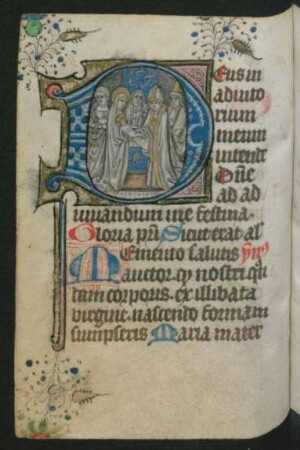 Deus in
adiuto
rium
meum
intende
Dñe
ad ad
iuuandum me festina.
Gloria pr̄i Sicut erat
Memento salutis
auctor. qͥ nostri qn̄
dam corporis. ex illibata
virgine. nascendo formam
sumpseris Maria mater